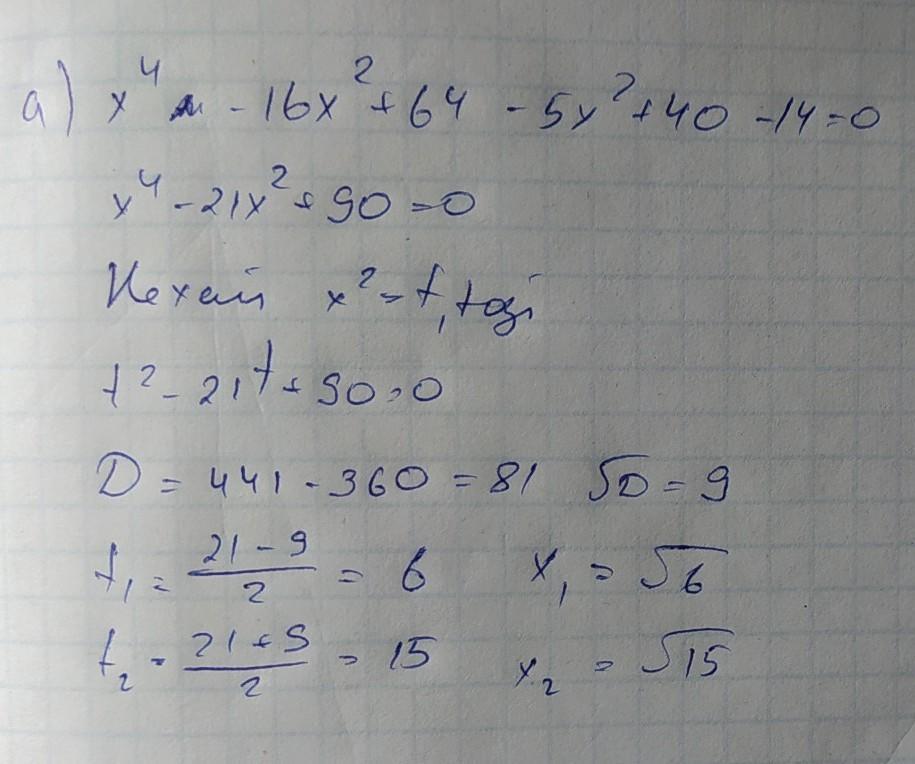 а) x⁴ - 16x² + 64 - 5x² + 40 - 14 = 0
x⁴ - 21x² + 90 = 0
Нехай x² = t, тоді
t² - 21t + 90 = 0
D = 441 - 360 = 81 √D = 9
t₁ = (21 - 9)/2 = 6 x₁ = √6
t₂ = (21 + 9)/2 = 15 x₂ = √15